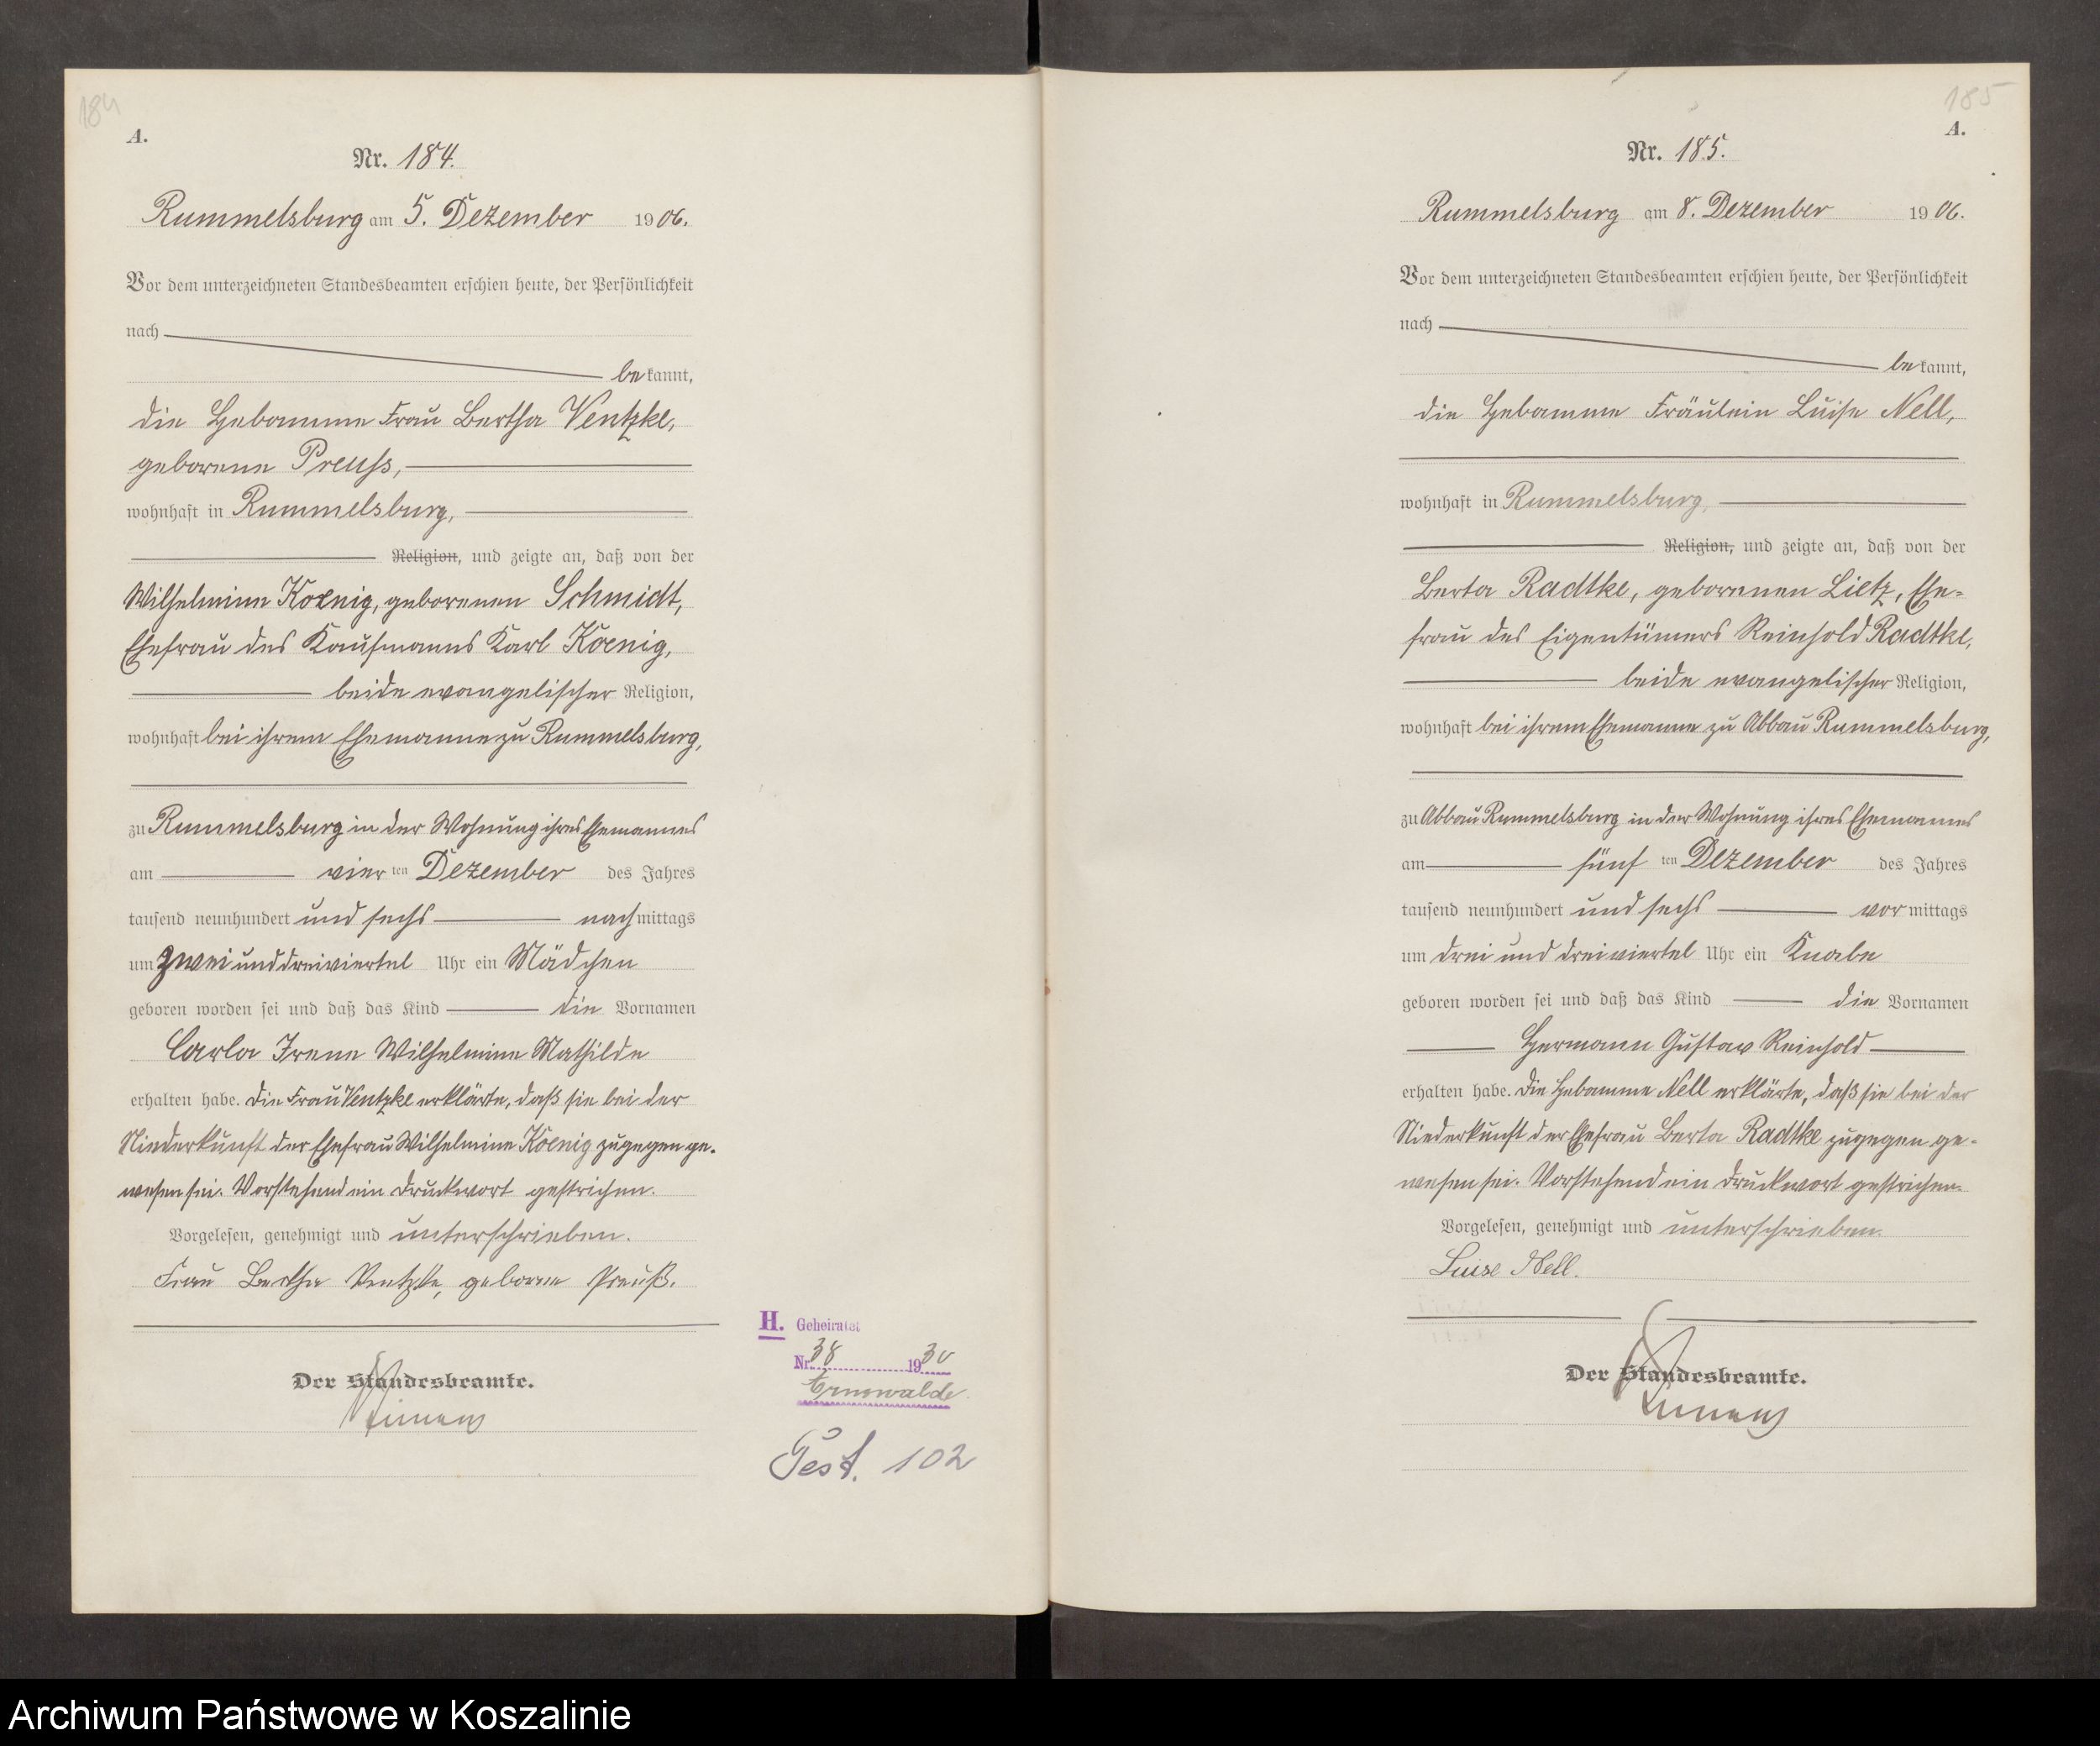 184
A.
Nr. 184.
Rummelsburg am 5. Dezember 1906.
Vor dem unterzeichneten Standesbeamten erschien heute, der Persönlichkeit
nach
bekannt,
die Hebamme Frau Bertha Ventzke,
geborene Preuss,
wohnhaft in Rummelsburg,
Religion, und zeigte an, daß von der
Wilhelmine Koenig, geborenen Schmidt,
Ehefrau des Kaufmanns Karl Koenig,
beide evangelischer Religion,
wohnhaft bei ihrem Ehemanne zu Rummelsburg,
zu Rummelsburg in der Wohnung ihres Ehemannes
am vierten Dezember des Jahres
tausend neunhundert und sechs nachmittags
um zwei und dreiviertel Uhr ein Mädchen
geboren worden sei und daß das Kind die Vornamen
Carla Irene Wilhelmine Mathilde
erhalten habe. Die Frau Ventzke erklärte, daß sie bei der
Niederkunft der Ehefrau Wilhelmine Koenig zugegen ge-
wesen sei. Vorstehend ein Druckwort gestrichen.
Vorgelesen, genehmigt und unterschrieben.
Frau Bertha Ventzke, geborne Preuß.
Der Standesbeamte.
H. Geheiratet
Nr. 38 1930
Arnswalde
Test. 102
185
A.
Nr. 185.
Rummelsburg am 8. Dezember 1906.
Vor dem unterzeichneten Standesbeamten erschien heute, der Persönlichkeit
nach
bekannt,
die Hebamme Fräulein Luise Nell,
wohnhaft in Rummelsburg,
Religion, und zeigte an, daß von der
Berta Radtke, geborenen Lietz, Ehe-
frau des Eigentümers Reinhold Radtke,
beide evangelischer Religion,
wohnhaft bei ihrem Ehemanne zu Abbau Rummelsburg,
zu Abbau Rummelsburg in der Wohnung ihres Ehemannes
am fünften Dezember des Jahres
tausend neunhundert und sechs vormittags
um drei und dreiviertel Uhr ein Knabe
geboren worden sei und daß das Kind die Vornamen
Hermann Gustav Reinhold
erhalten habe. Die Hebamme Nell erklärte, daß sie bei der
Niederkunft der Ehefrau Berta Radtke zugegen ge-
wesen sei. Vorstehend ein Druckwort gestrichen.
Vorgelesen, genehmigt und unterschrieben.
Luise Nell.
Der Standesbeamte.
Archiwum Państwowe w Koszalinie